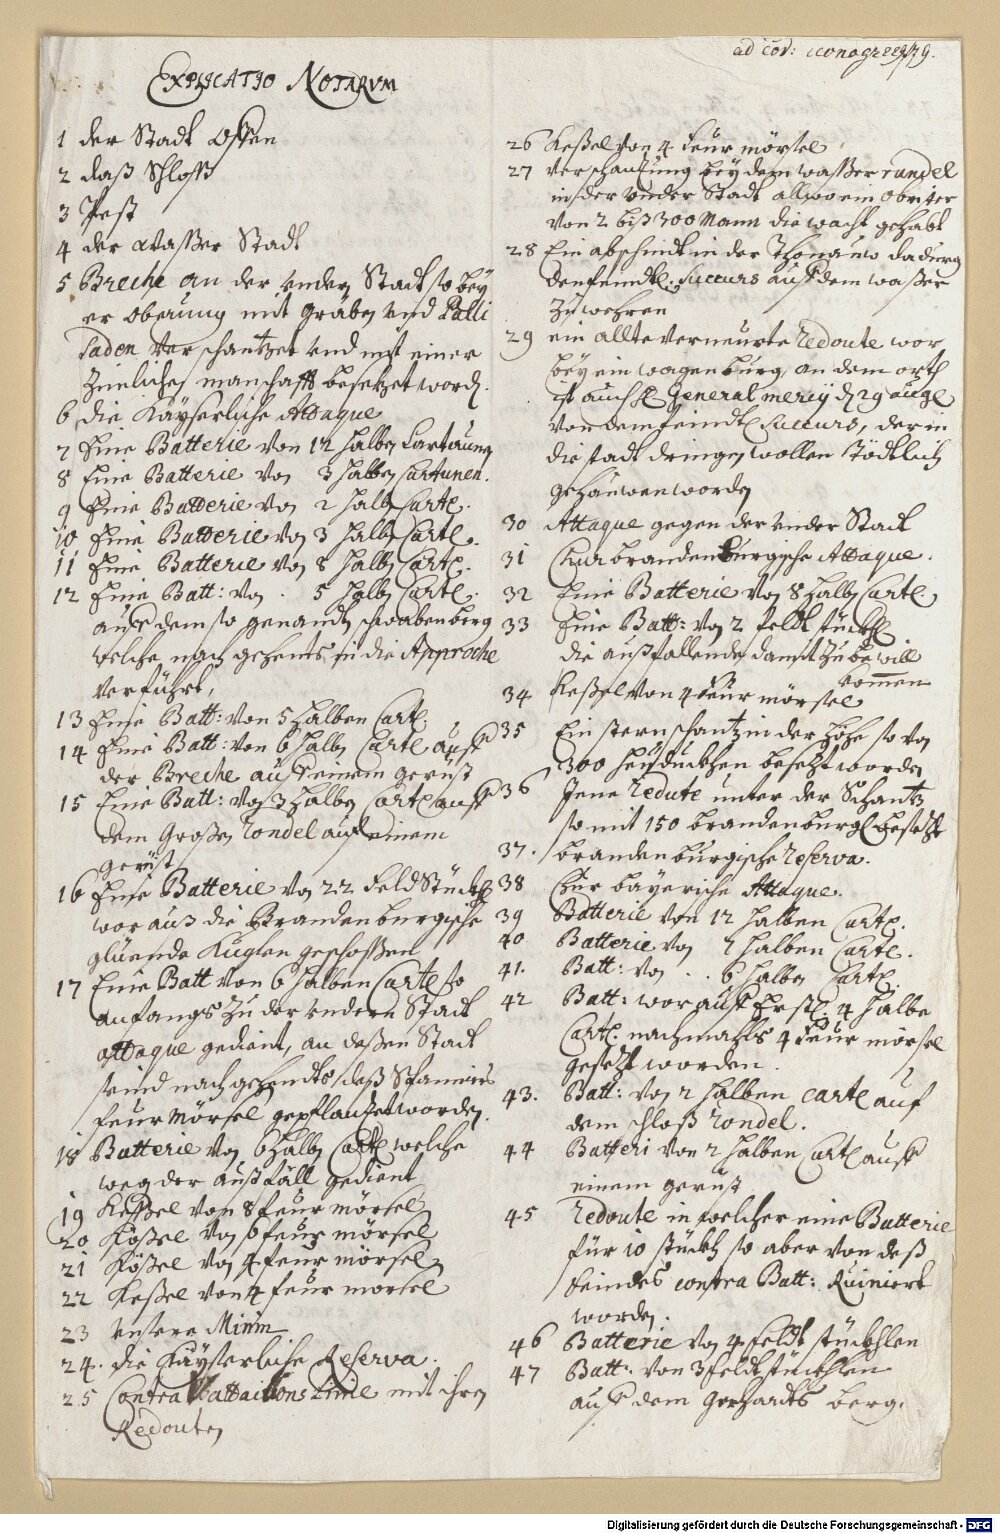 ad cod: iconogr
EXPLICATIO NOTARVM
1 der Stadt Offen
2 daß Schloß
3 Pest
4 der Wasser Stadt
5 Breche an der under Stadt so bey
er oberung mit graben und Palli
saden verschantzet und mit einer
zimlichen manschafft besetzet word.
6 die Kayserliche Attaque
7 Eine Batterie von 12 halben Cartaunen
8 Eine Batterie von 3 halben Cartunen.
9 Eine Batterie von 2 halb. Cart.
10 Eine Batterie von 3 halb. Cart.
11 Eine Batterie von 8 halb. Cart.
12 Eine Batt: von . 5 halb. Cart.
auff dem so genandten schwabenberg
welche nach gehents in die Approche
verführt,
13 Eine Batt: von 5 halben Cart.
14 Eine Batt: von 6 halben Cart auff
der Breche auff einem gerüst
15 Eine Batt: von 3 halben Cart auff
dem Großen rondel auf einem
gerüst
16 Eine Batterie von 22 Feld Stückh
wor auß die Brandenburgische
glüende Kuglen geschossen
17 Eine Batt von 6 halben Cart so
anfangs zu der undern Stadt
attaque gedient, an deßen Stadt
seind nach gehendts deß
feur Mörsel gepflantzet worden.
18 Batterie von 6 halb Cart welche
weg der außfäll gedient
19 Keßel von 8 feur mörsel
20 Kößel von 6 feur mörsel
21 Kößel von 4 feur mörsel
22 Keßel von 4 feur mörsel
23 unsere Minn
24. die Kayserliche Reserva.
25 Contra Vattaitions Linie mit ihren
Redouten
26 Keßel von 4 feur mörsel
27 verschantzung bey dem wasser rundel
in der under Stadt allwo ein obrister
von 2 biß 300 Mann die wacht gehabt
28 Ein abschnidt in der Thonauw
den feindtl. Succurs auff dem waßer
zu wehren
29 ein allte verneurte redoute wor
bey ein wagenburg, an dem orth
ist auch General mercy d 29 aug
von dem feindtl Succurs, der in
die stadt dringen wollen Tödtlich
gehauwen worden
30 Attaque gegen der under Stadt
31 Chur brandenburgische Attaque.
32 Eine Batterie von 8 halb Cart.
33 Eine Batt: von 2 feldt stückh
die außfallende damit zu bewill
kommen
34 Keßel von 4 feur mörsel
35 Ein sternschantz in der höhe so von
300 heyduckhen besetzt worden
36 Jene redute unter der Schantz
so mit 150 brandenburg. besetzt
37. brandenburgische reserva.
38 Chur bayerische Attaque.
39 Batterie von 12 halben Cart.
40 Batterie von 7 halben Cart.
41. Batt: von . . 6 halben Cart.
42 Batt: worauff Erstl. 4 halbe
Cart. nachmahls 4 feur mörsel
gesetzt worden.
43. Batt: von 2 halben cart auf
dem schloß rondel.
44 Batteri von 2 halben Cart auff
einem gerüst
45 redoute in welcher eine Batterie
für 10 stückh so aber von deß
feindes contra Batt: Ruiniert
worden.
46 Batterie von 4 feldt stückhlen
47 Batt: von 3 feldt stückhlen
auff dem Gerhardts berg.
Digitalisierung gefördert durch die Deutsche Forschungsgemeinschaft - DFG